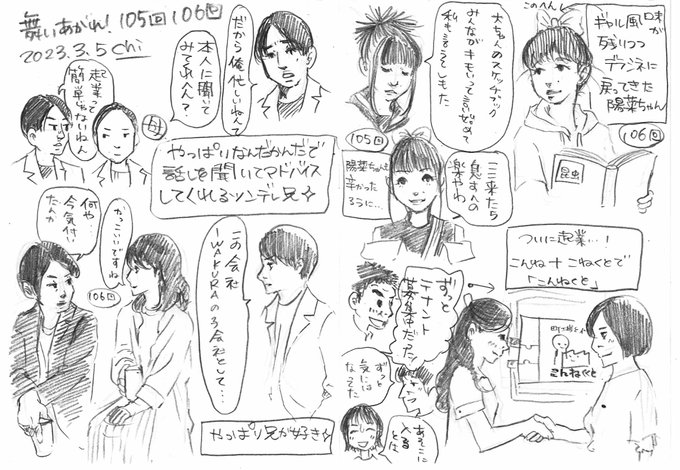 舞いあがれ! 105回 106回
2023.3.5 chi
だから俺忙しいねんて
本人に聞いて
みてくれへん?
起業って
簡単じゃないねん
母
やっぱりなんだかんだで
話しを聞いてアドバイス
してくれるツンデレ兄☆
何や…
今気付い
たんか
かっこいいですね
106回
この会社
IWAKURAの子会社として…
やっぱり兄が好き☆
大ちゃんのスケッチブック
みんながキモいって言い始めて
私も言うてしもた
105回
陽菜ちゃんも
辛かった
ろうに…
ここ来たら
息すんの
楽やねん
このへん
ギャル風味が
残りつつ
デラシネに
戻ってきた
陽菜ちゃん
106回
昆虫
ついに起業…!
こんね+こねくとで
「こんねくと」
ずっと
テナント
募集中だった!
ずっと
気には
なってた
あそこに
入る
とは
こんねくと